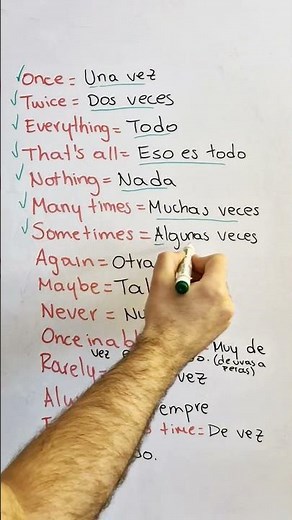 ✓Once = Una vez
✓Twice = Dos veces
✓Everything = Todo
✓That's all = Eso es todo
✓Nothing = Nada
✓Many times = Muchas veces
✓Sometimes = Algunas veces
Again = Otra
Maybe = Tal
Never = Nu
Once in a bl Muy de
vez (de uvas a
Rarely = vez peras)
Alw empre
time = De vez
do.